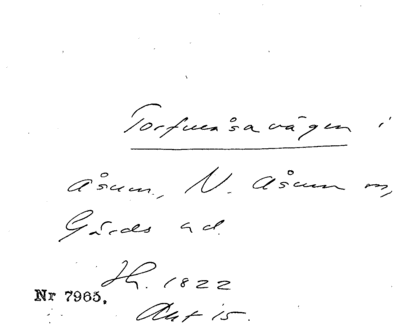 Torfmåsavägen i
Åsum, N. Åsum sn,
Gärds hd.
Sk. 1822
Nr 7965. Akt 15.